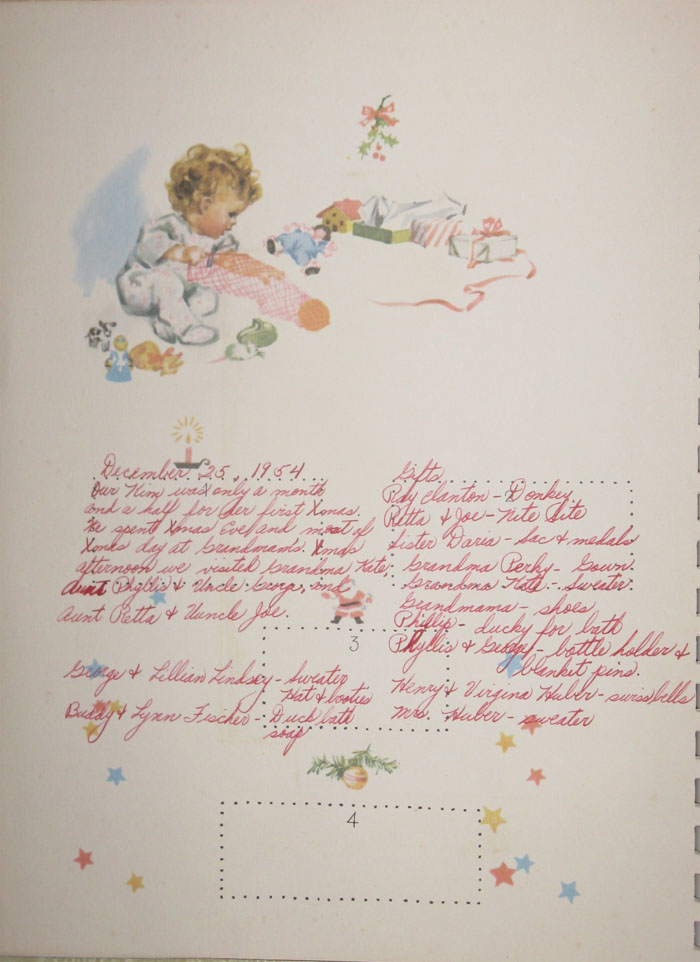 December 25, 1954
Our Kim was only a month
and a half for her first Xmas.
We spent Xmas Eve and most of
Xmas day at Grandmam's. Xmas
afternoon we visited Grandma Kate,
Aunt Phyllis & Uncle George, and
Aunt Retta & Uuncle Joe.
George & Lillian Lindsey - Sweater
Hat & booties
Buddy & Lynn Fischer - Duck bath
soap
Gifts
Ray Clanton - Donkey
Retta & Joe - Nite Lite
Sister Daria - Sac & medals
Grandma Perky - Gown.
Grandma Kate - Sweater.
Grandmama - shoes
Phillip - ducky for bath
Phyllis & George - bottle holder &
blanket pins.
Henry & Virgina Huber - swiss bells
Mrs. Huber - sweater
3
4